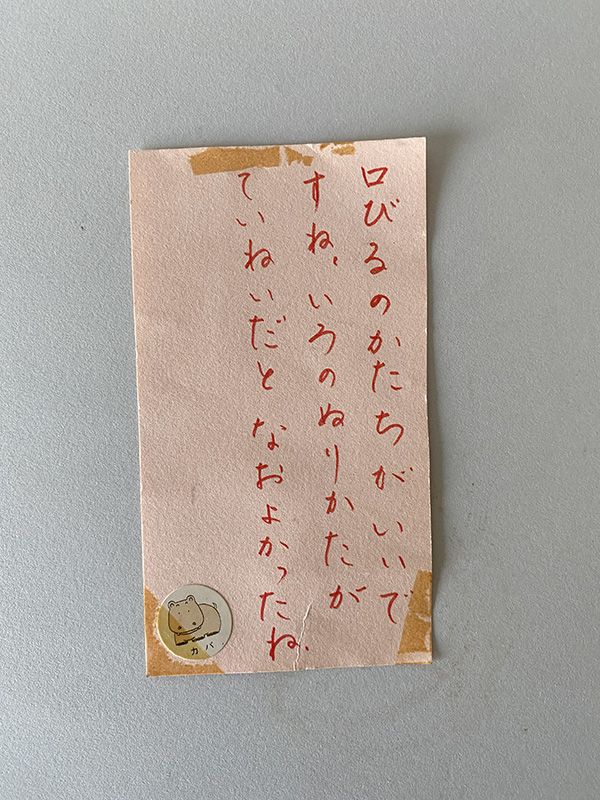 口びるのかたちがいいで
すね、いろのぬりかたが
ていねいだと なおよかったね.
カバ